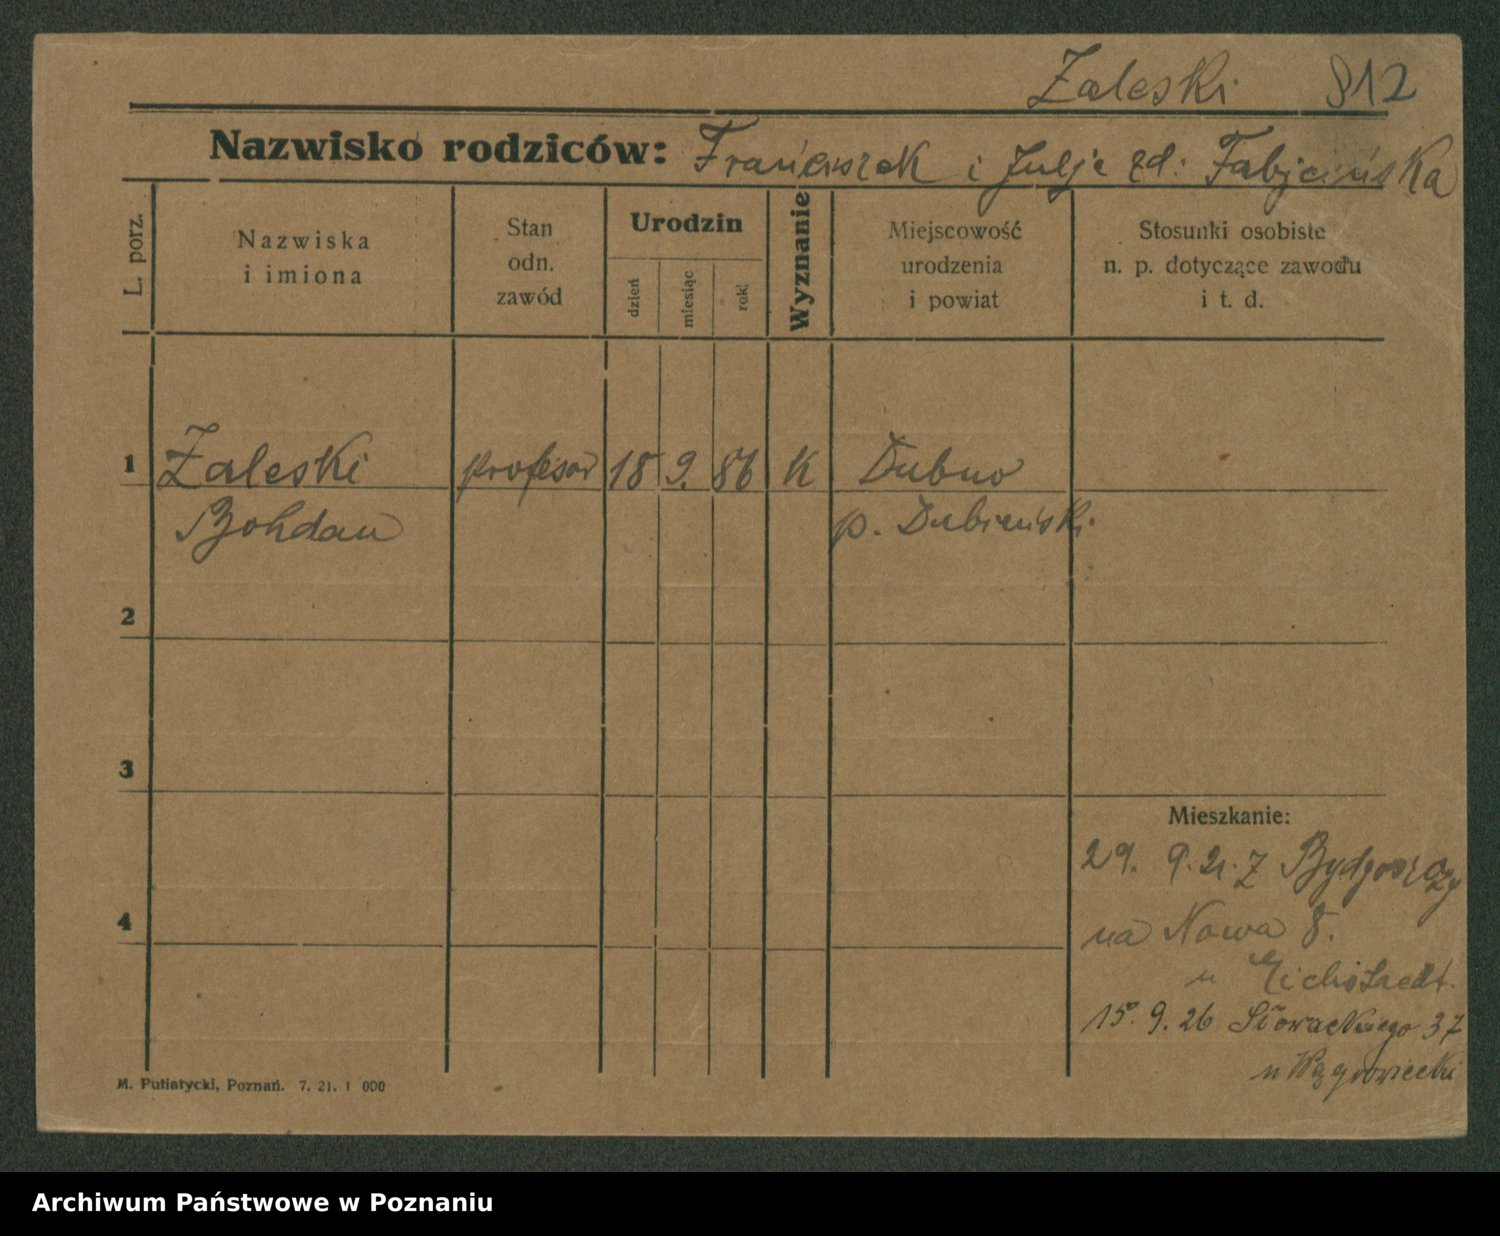 Zaleski 812
Nazwisko rodziców: Franciszek i Julja zd: Fabjańska
L. porz.
Nazwiska
i imiona
Stan
odn.
zawód
Urodzin
dzień
miesiąc
rok
Wyznanie
Miejscowość
urodzenia
i powiat
Stosunki osobiste
n. p. dotyczące zawodu
i t. d.
1 Zaleski profesor 18 9. 86 K Dubno
Bohdan p. Dubieński.
2
3
Mieszkanie:
29. 9. 21. z Bydgoszczy
4
na Nowa 8.
u Eichstaedt.
15. 9. 26 Słowackiego 37
u Wągrowiecki
M. Putiatycki, Poznań. 7. 21. 1 000
Archiwum Państwowe w Poznaniu